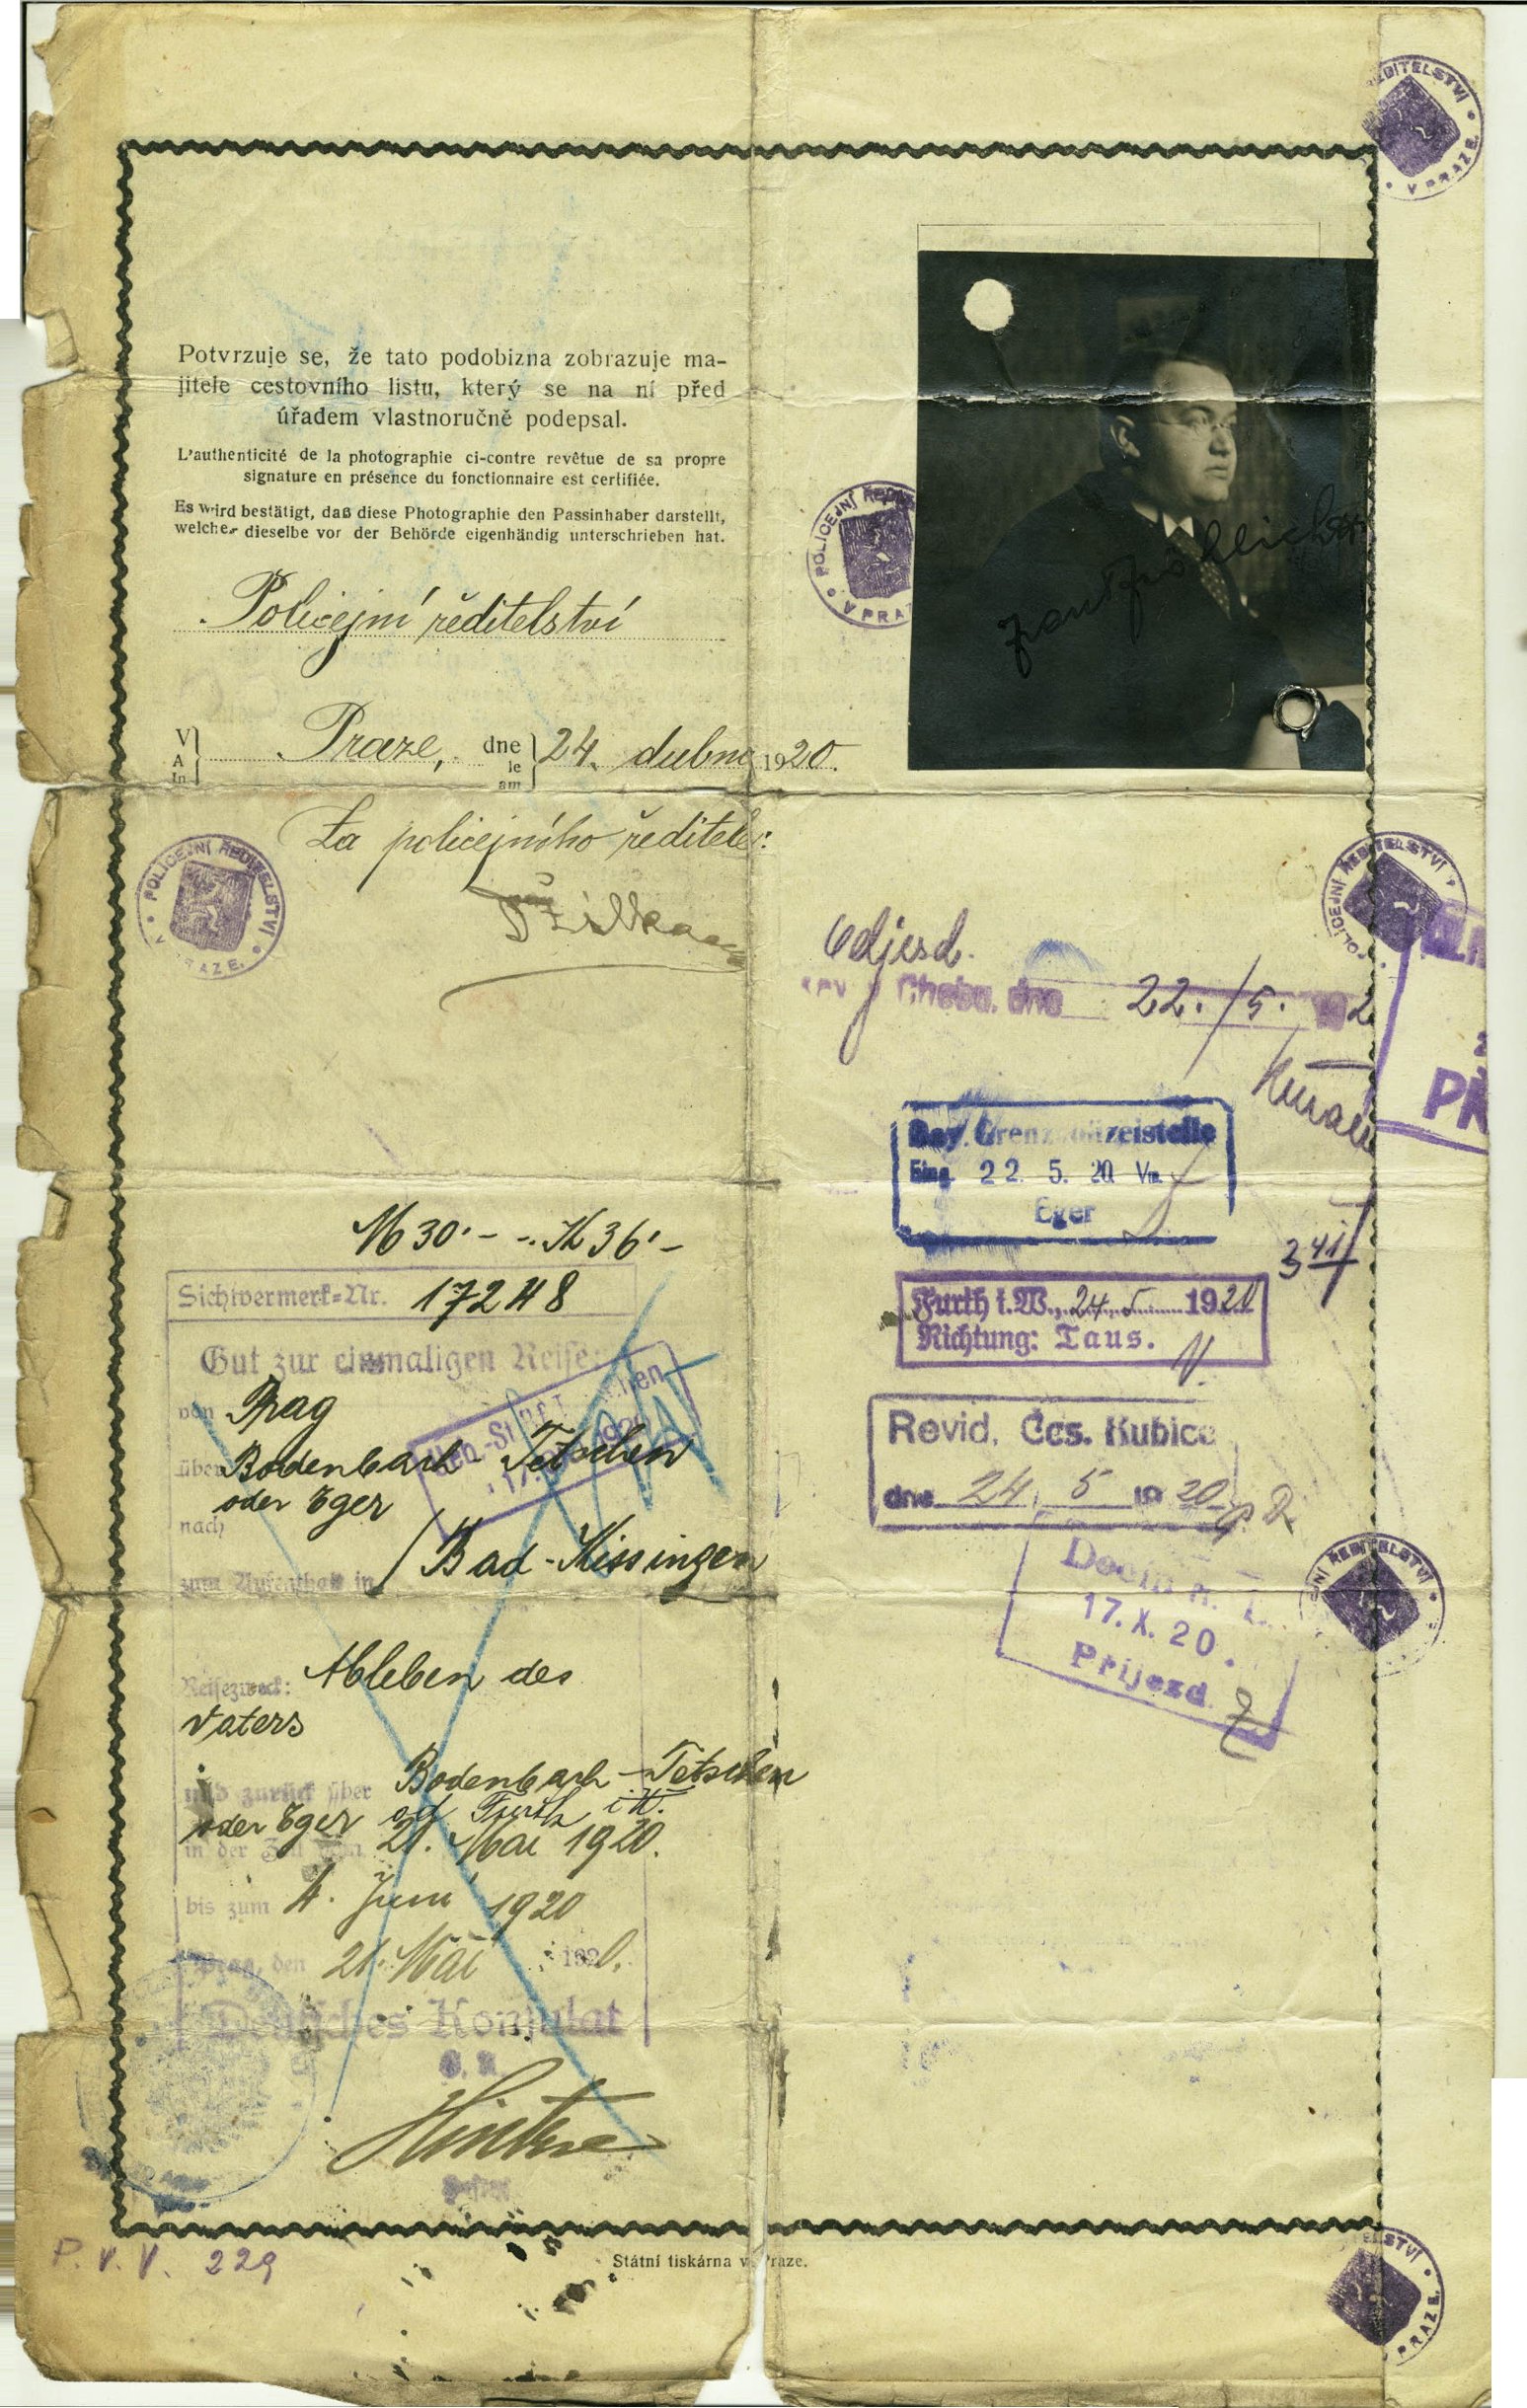 Potvrzuje se, že tato podobizna zobrazuje ma-
jitele cestovního listu, který se na ní před
úřadem vlastnoručně podepsal.
L'authenticité de la photographie ci-contre revêtue de sa propre
signature en présence du fonctionnaire est certifiée.
Es wird bestätigt, daß diese Photographie den Passinhaber darstellt,
welcher dieselbe vor der Behörde eigenhändig unterschrieben hat.
Policejní ředitelství
V
A
In
Praze, dne
le
am
24. dubna 1920.
Za policejního ředitele:
POLICEJNÍ ŘEDITELSTVÍ
V PRAZE.
M 30.- -. K 36.-
Sichtvermerk-Nr. 17248
Gut zur einmaligen Reise:
von Prag
über Bodenbach - Tetschen
oder Eger
nach
zum Aufenthalt in Bad-Kissingen
Reisezweck: Ableben des
Vaters
und zurück über Bodenbach-Tetschen
oder Eger od. Furth i.W.
in der Zeit vom 21. Mai 1920.
bis zum 4. Juni 1920
Prag, den 21. Mai 1920.
Deutsches Konsulat
P. V. V. 229
Státní tiskárna v Praze.
ŘEDITELSTVÍ
V PRAZE.
POLICEJNÍ
V PRA
Fröhlich
POLICEJNÍ ŘEDITELSTVÍ
Odjezd.
Chebu, dne 22./5. 192
PŘ
Bay. Grenzpolizeistelle
Eing. 22. 5. 20 Vm.
Eger
341
Furth i.W., 24. 5. 1920
Richtung: Taus.
Revid. Čes. Kubice
dne 24. 5. 1920
17. X. 20.
Příjezd
ŘEDITELSTVÍ
PRAZE.